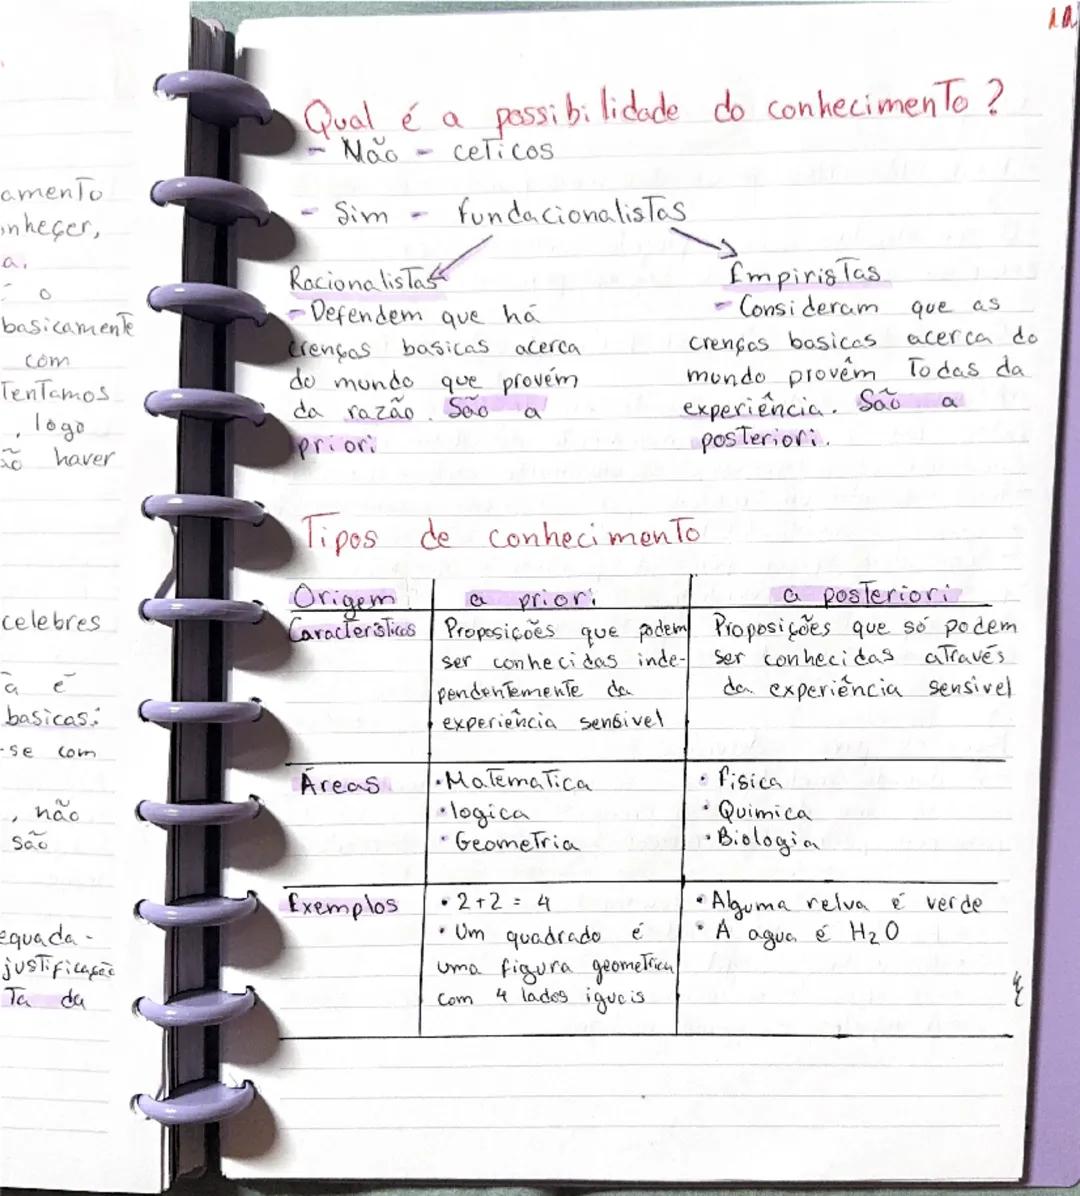 amento
onheçer,
a.
é o
basicamente
com
Tentamos
, logo
ão haver
celebres
à é
basicas:
-se com
, não
são
equada-
justificação
Ta da
Qual é a possibilidade do conhecimento?
- Não - ceticos
- Sim - fundacionalistas
Racionalistas
- Defendem que há
crenças basicas acerca
do mundo que provém
da razão. São a
priori
Empiristas
- Consideram que as
crenças basicas acerca do
mundo provêm Todas da
experiência. São a
posteriori.
Tipos de conhecimento
Origem a priori a posteriori
Caracteristicas
Proposições que podem
ser conhecidas inde-
pendentemente da
experiência sensivel
Proposições que só podem
ser conhecidas através
da experiência sensivel
Áreas
• Matematica
• logica
• Geometria
• Fisica
• Quimica
• Biologia
Exemplos
• 2+2 = 4
• Um quadrado é
uma figura geometrica
com 4 lados iguais
• Alguma relva é verde
• A agua é H2O